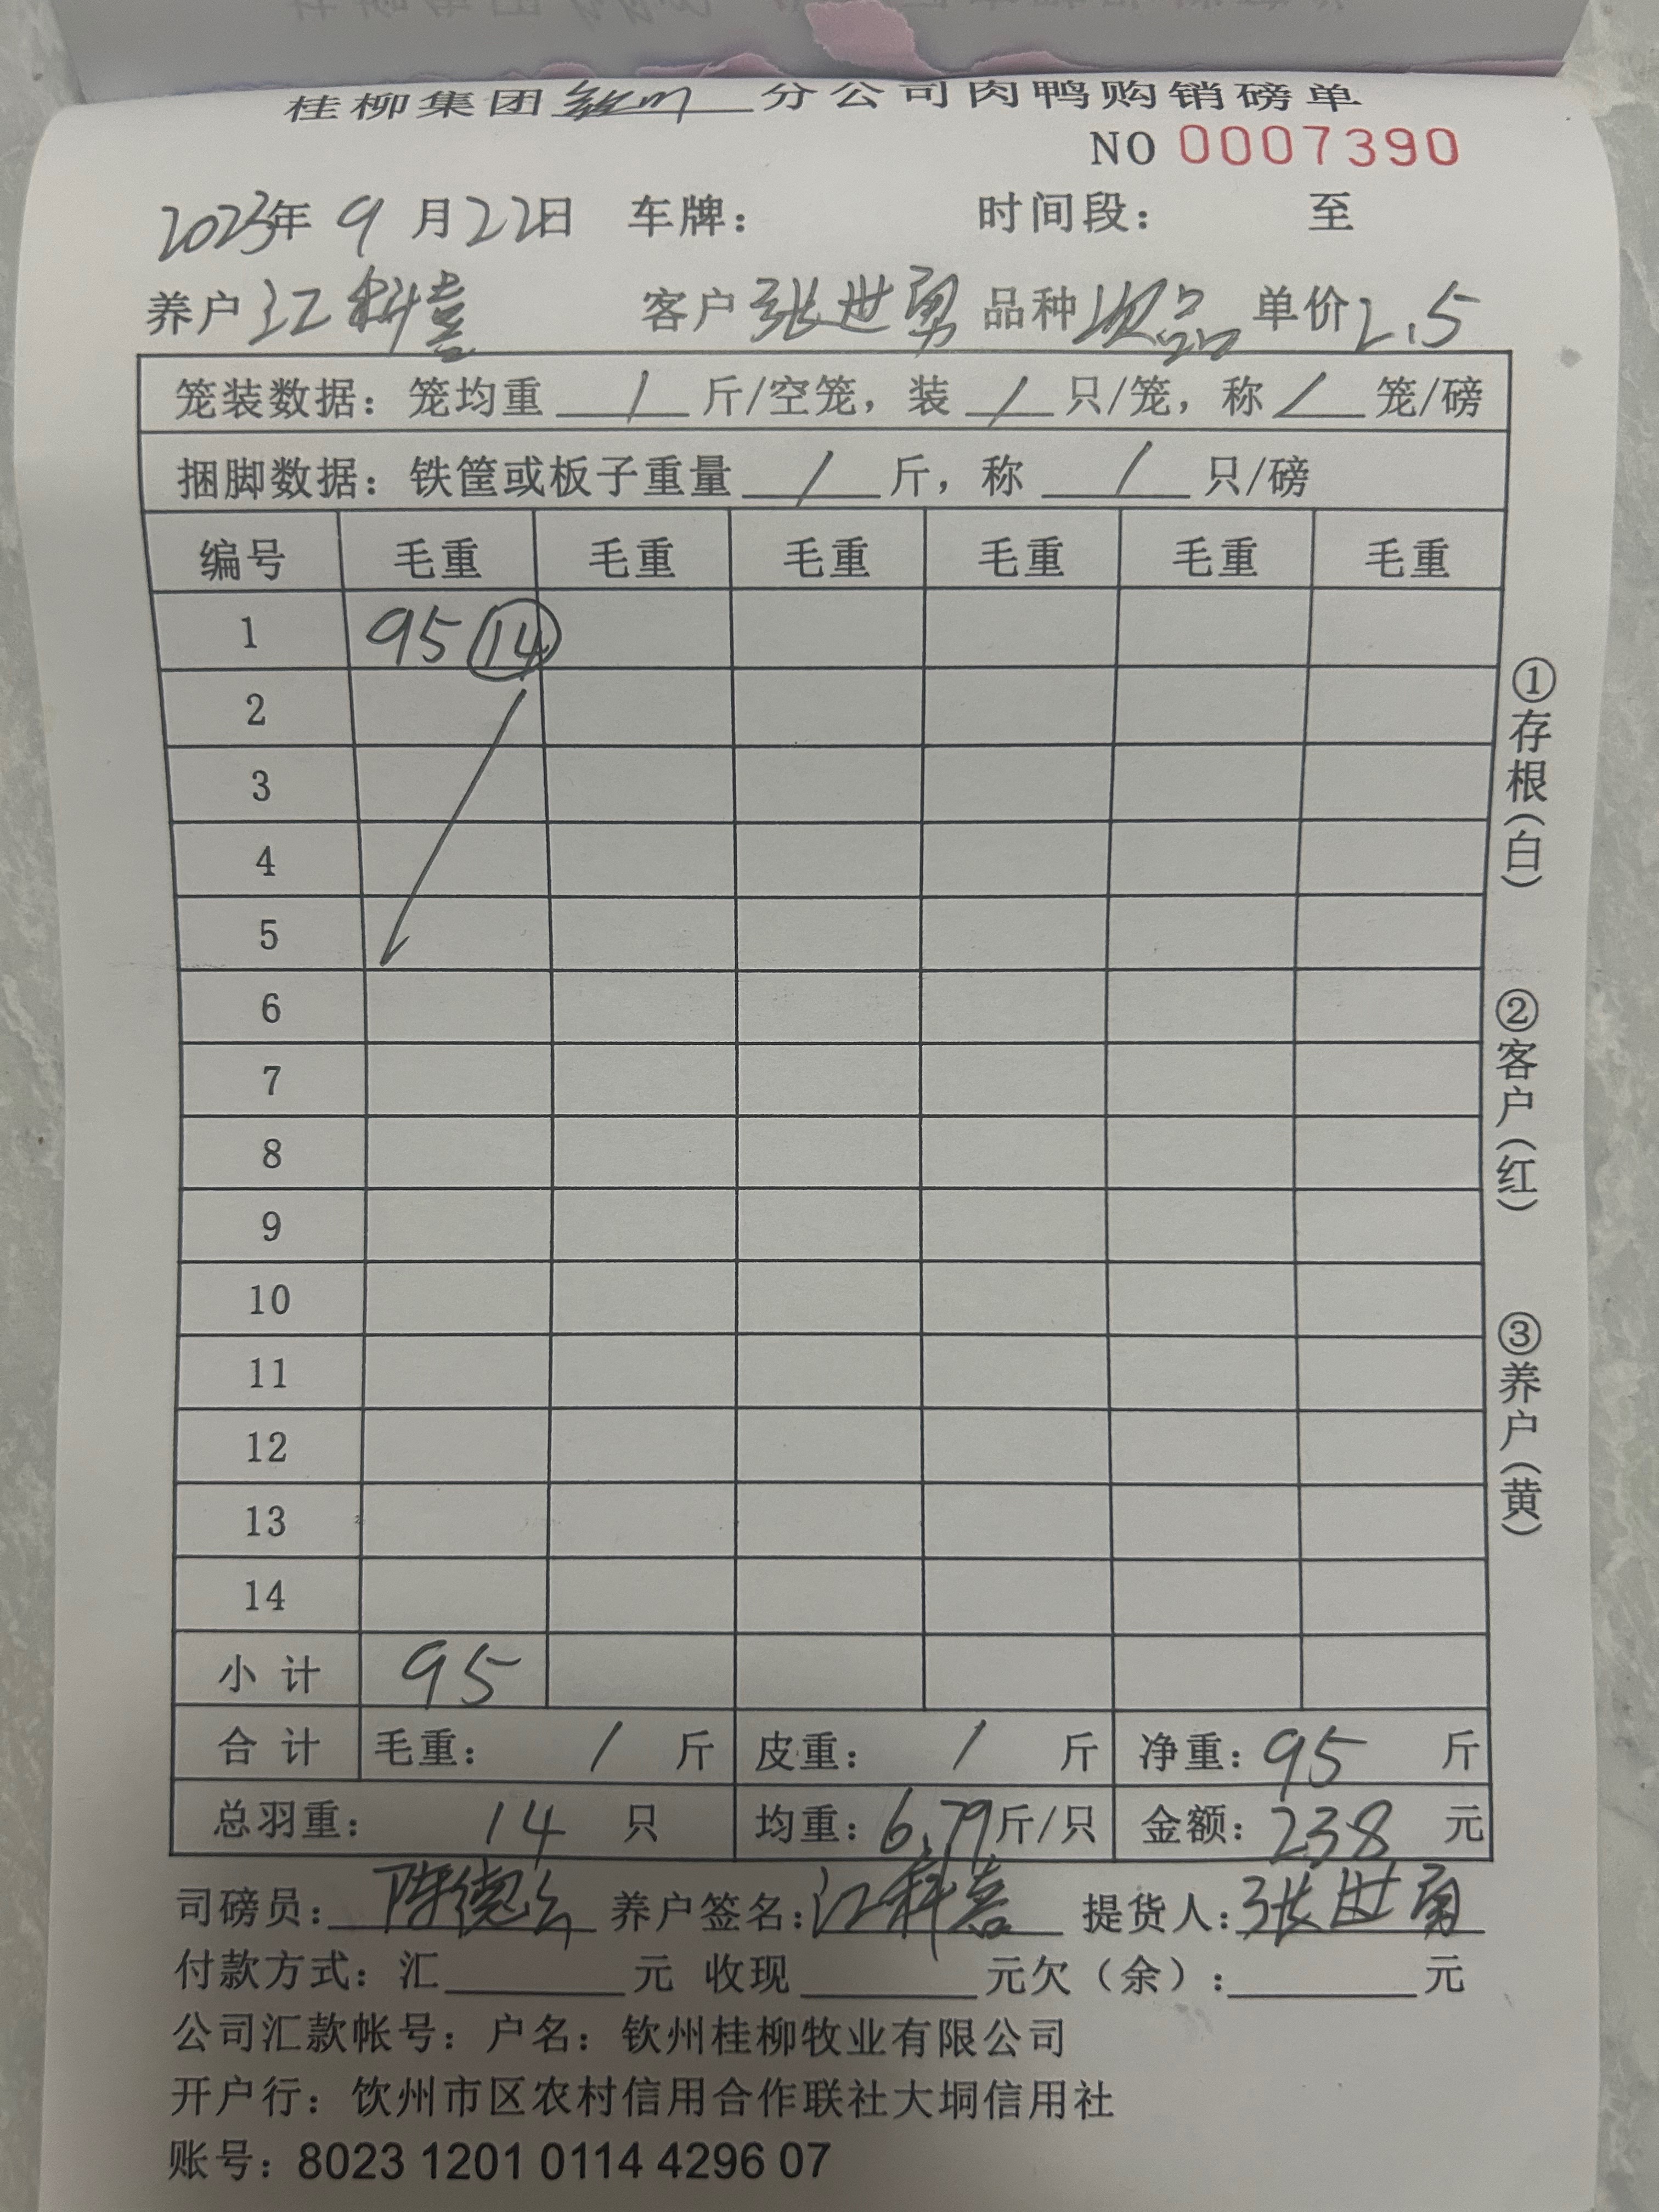 桂柳集团钦州分公司肉鸭购销磅单
NO 0007390
2023年 9 月 22日 车牌： 时间段： 至
养户 江科喜 客户 张世勇 品种 次品 单价 2.5
笼装数据：笼均重 / 斤/空笼，装 / 只/笼，称 / 笼/磅
捆脚数据：铁筐或板子重量 / 斤，称 / 只/磅
编号 毛重 毛重 毛重 毛重 毛重 毛重
1 95 14
2
3
4
5
6
7
8
9
10
11
12
13
14
小计 95
合计 毛重： / 斤 皮重： / 斤 净重：95 斤
总羽重： 14 只 均重：6.79斤/只 金额：238 元
司磅员：陈德 养户签名：江科喜 提货人：张世勇
付款方式：汇 元 收现 元欠（余）： 元
公司汇款帐号：户名：钦州桂柳牧业有限公司
开户行：饮州市区农村信用合作联社大垌信用社
账号：8023 1201 0114 4296 07
①存根（白）
②客户（红）
③养户（黄）